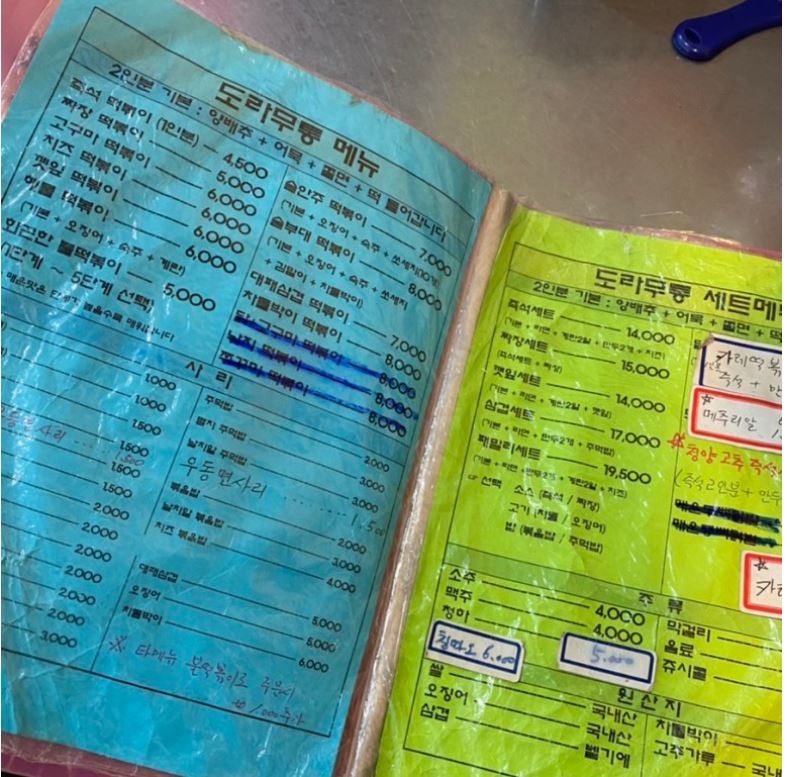 도라무통 메뉴
2인분 기본 : 양배추 + 어묵 + 쫄면 + 떡 들어갑니다
즉석 떡볶이 (1인분) 4,500
짜장 떡볶이 5,000
고구미 떡볶이 6,000
치즈 떡볶이 6,000
깻잎 떡볶이 6,000
해물 떡볶이 6,000
(기본 + 오징어 + 숙주 + 계란)
화끈한 불떡볶이 5,000
1단계 ~ 5단계 선택!
술안주 떡볶이 7,000
(기본 + 오징어 + 숙주 + 쏘세지(10개)
술부대 떡볶이 8,000
(기본 + 오징어 + 숙주 + 쏘세지
+ 김말이 + 차돌박이)
대패삼겹 떡볶이 7,000
차돌박이 떡볶이 8,000
8,000
낙지 떡볶이 8,000
쭈꾸미 떡볶이 8,000
사 리
1,000
1,000
1,500
1,500
1,500
1,500
2,000
2,000
2,000
2,000
2,000
3,000
주먹밥 2,000
멸치 주먹밥 3,000
날치알 주먹밥 3,000
우동면사리 1,500
볶음밥 2,000
날치알 볶음밥 3,000
치즈 볶음밥 4,000
대패삼겹 5,000
오징어 5,000
차돌박이 6,000
※ 타메뉴 불떡볶이로 주문시
1,000추가
도라무통 세트메
2인분 기본 : 양배추 + 어묵 + 쫄면 + 떡
즉석세트 14,000
(기본 + 라면 + 계란2알 + 만두2개 + 치즈)
짜장세트 15,000
(즉석세트 + 짜장)
깻잎세트 14,000
(기본 + 라면 + 계란2알 + 깻잎)
삼겹세트 17,000
(기본 + 라면 + 만두2개 + 주먹밥)
패밀리세트 19,500
(기본 + 라면 + 만두2개 + 계란2알 + 치즈)
☞ 선택 소스 (즉석 / 짜장)
고기 (차돌 / 오징어)
밥 (볶음밥 / 주먹밥)
카레떡볶
즉석 + 만
메추리알
※ 청양고추 즉석
(즉석2인분 + 만두
주 류
소주 4,000
맥주 4,000
청하 5,000
칭따오 6,000
막걸리
음료
쥬시쿨
원 산 지
쌀 국내산
오징어 국내산
삼겹 벨기에
차돌박이
고추가루 국내